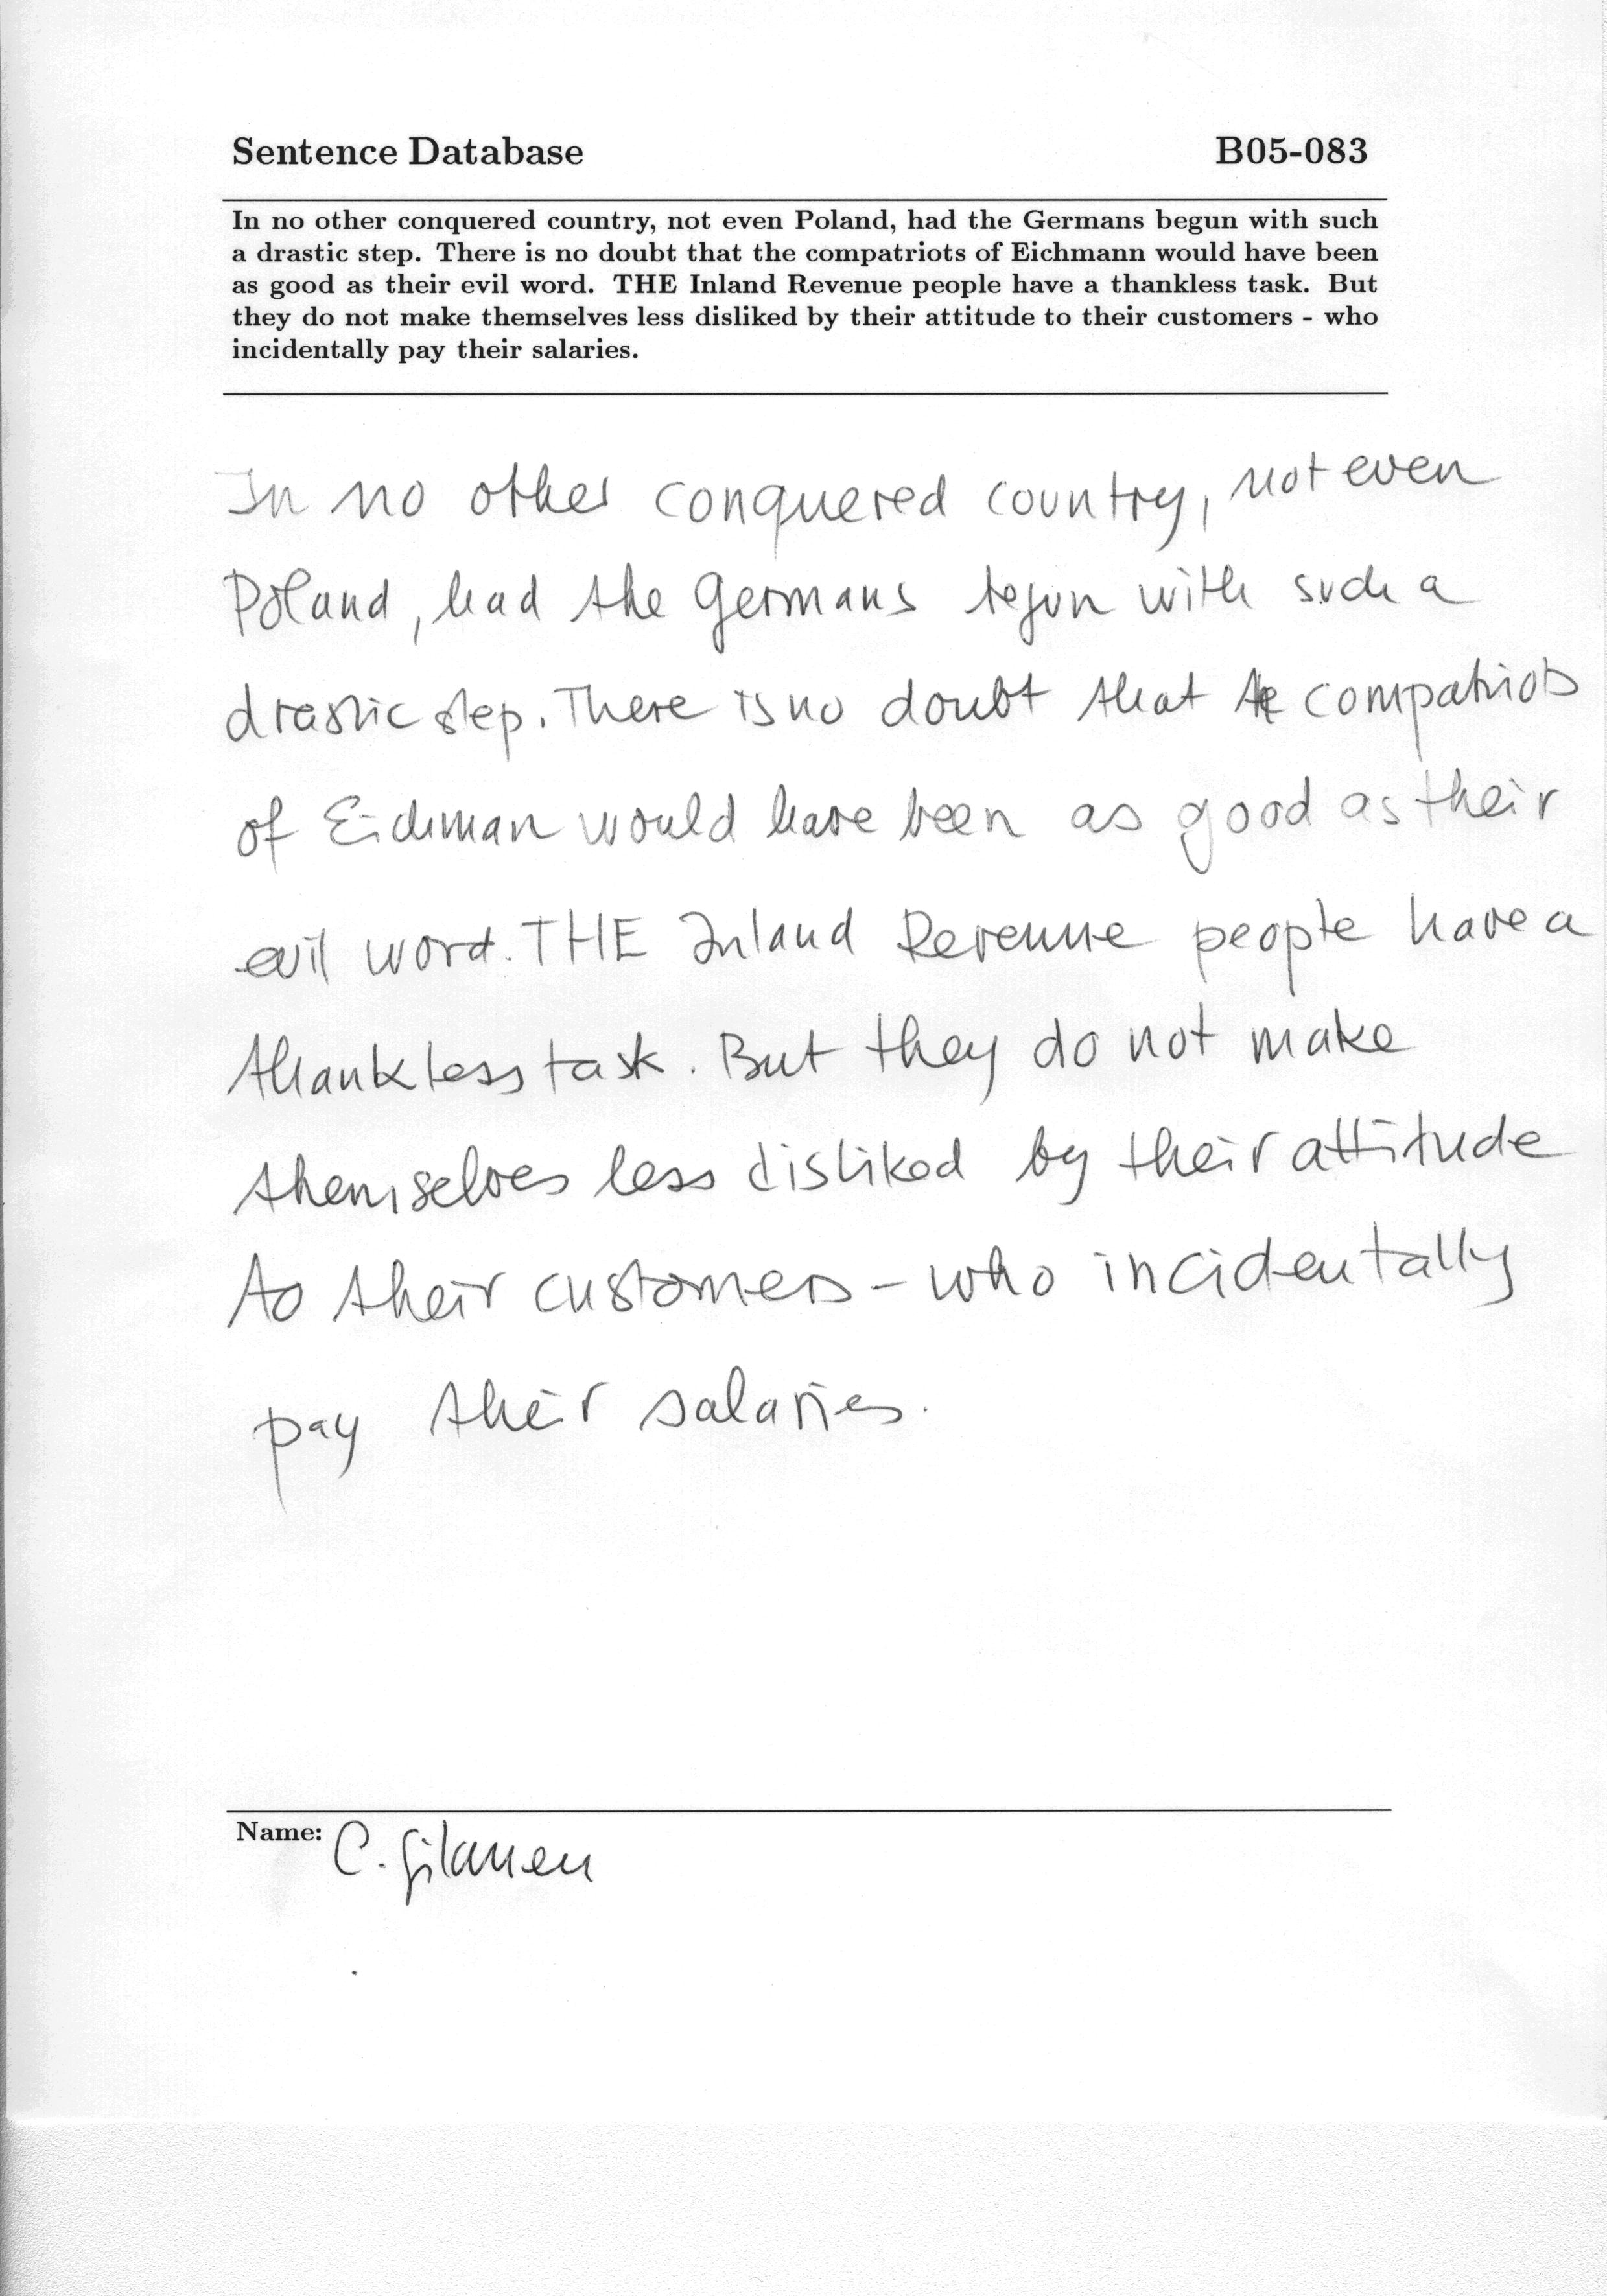 Sentence Database B05-083
In no other conquered country, not even Poland, had the Germans begun with such
a drastic step. There is no doubt that the compatriots of Eichmann would have been
as good as their evil word. THE Inland Revenue people have a thankless task. But
they do not make themselves less disliked by their attitude to their customers - who
incidentally pay their salaries.
In no other conquered country, not even
Poland, had the Germans begun with such a
drastic step. There is no doubt that the compatriots
of Eichman would have been as good as their
evil word. THE Inland Revenue people have a
thankless task. But they do not make
themselves less disliked by their attitude
to their customers - who incidentally
pay their salaries.
Name: C.